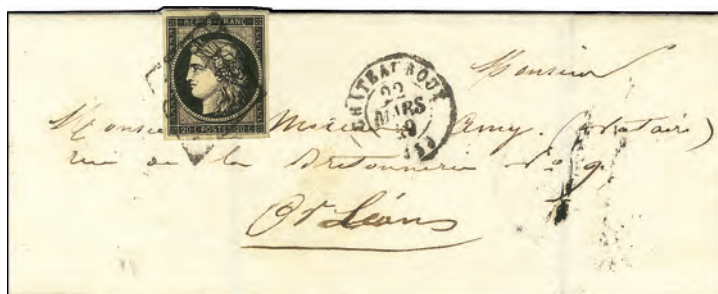 REPUB. FRANC.
20 C POSTES 20 C
CHATEAUROUX
22
MARS
49
(35)
Monsieur
Monsieur Amy. (Notaire)
rue de la Bretonnerie No 9
Orléans